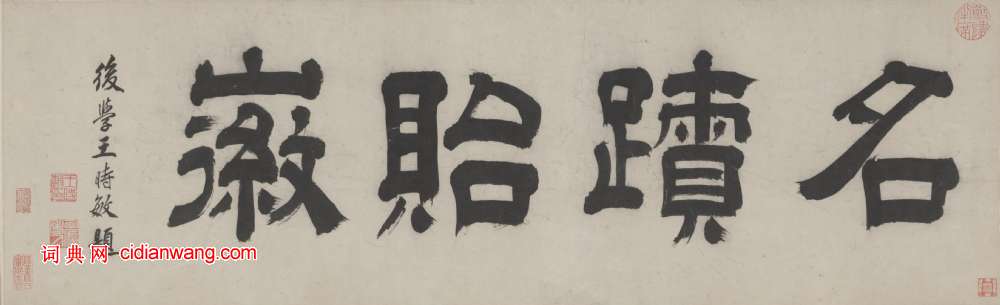 名蹟貽徽
後學王時敏題
词典网 cidianwang.com